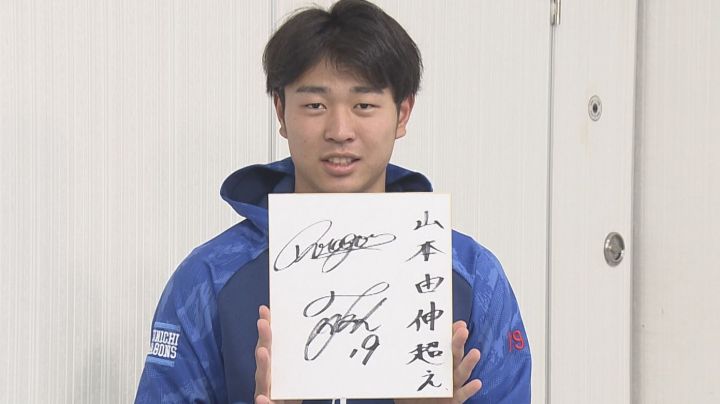 山本由伸超え
Dragons
19
UNICHI
AGONS
19